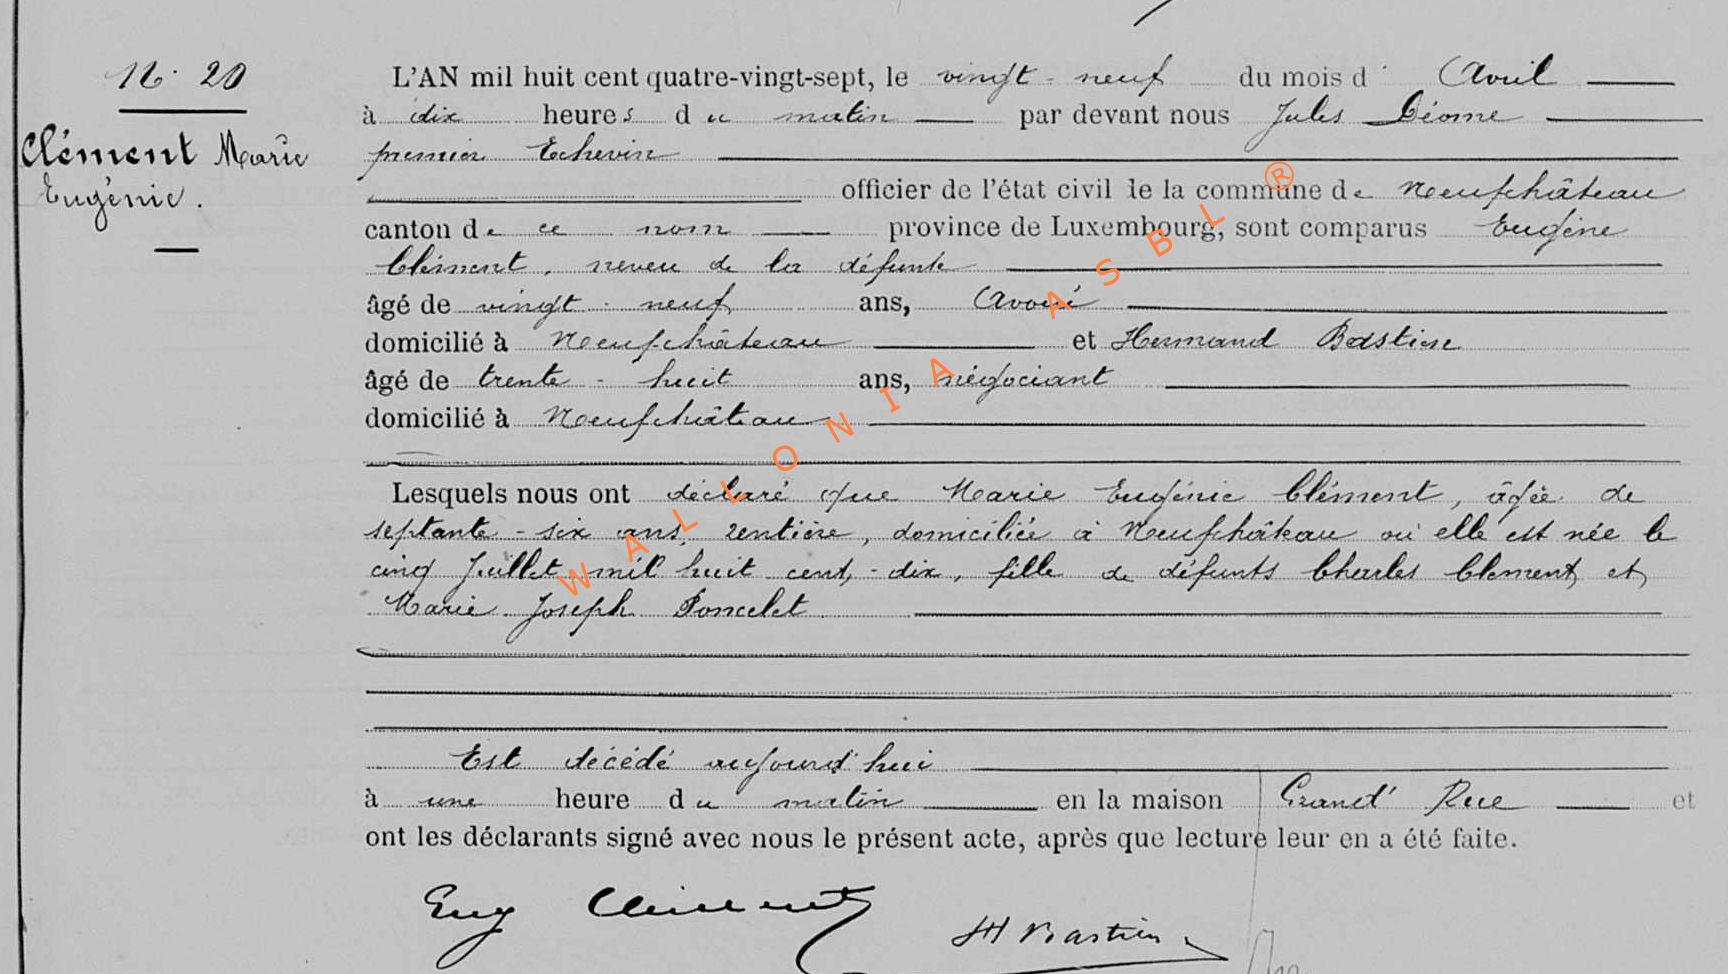 N. 20
Clément Marie
Eugénie.
L'AN mil huit cent quatre-vingt-sept, le vingt-neuf du mois d' Avril
à dix heures du matin par devant nous Jules Déome
premier Echevin
officier de l'état civil de la commune de Neufchâteau
canton de ce nom province de Luxembourg, sont comparus Eugène
Clément, neveu de la défunte
âgé de vingt-neuf ans, Avoué
domicilié à Neufchâteau et Hermand Bastien
âgé de trente-huit ans, négociant
domicilié à Neufchâteau
Lesquels nous ont déclaré que Marie Eugénie Clément, âgée de
septante-six ans, rentière, domiciliée à Neufchâteau où elle est née le
cinq Juillet mil huit cent-dix, fille de défunts Charles Clement et
Marie Joseph Poncelet
Est décédé aujourd'hui
à une heure du matin en la maison Grand' Rue et
ont les déclarants signé avec nous le présent acte, après que lecture leur en a été faite.
Eug Clément
H Bastien
WALLONIA ASBL ®